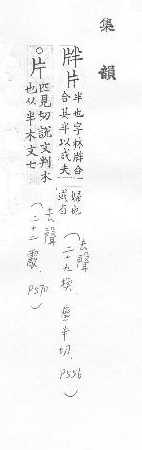 集韻
牉片半也字林牉合
合其半以成夫
婦也
或省
(去聲
二十九換
P556)
○片匹見切說文判木
也从半木文七
(去聲
二十二霰
P570)